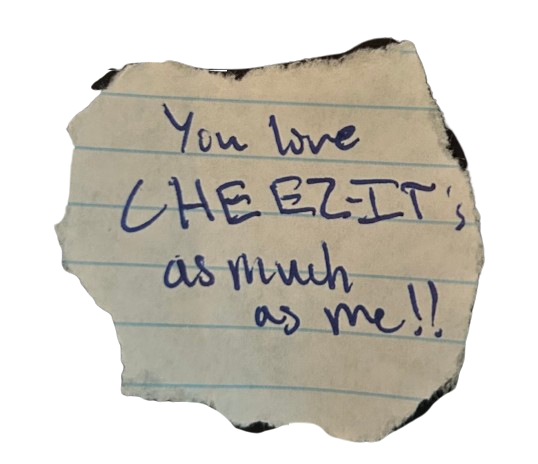 You love
CHEEZ-IT's
as much
as me!!